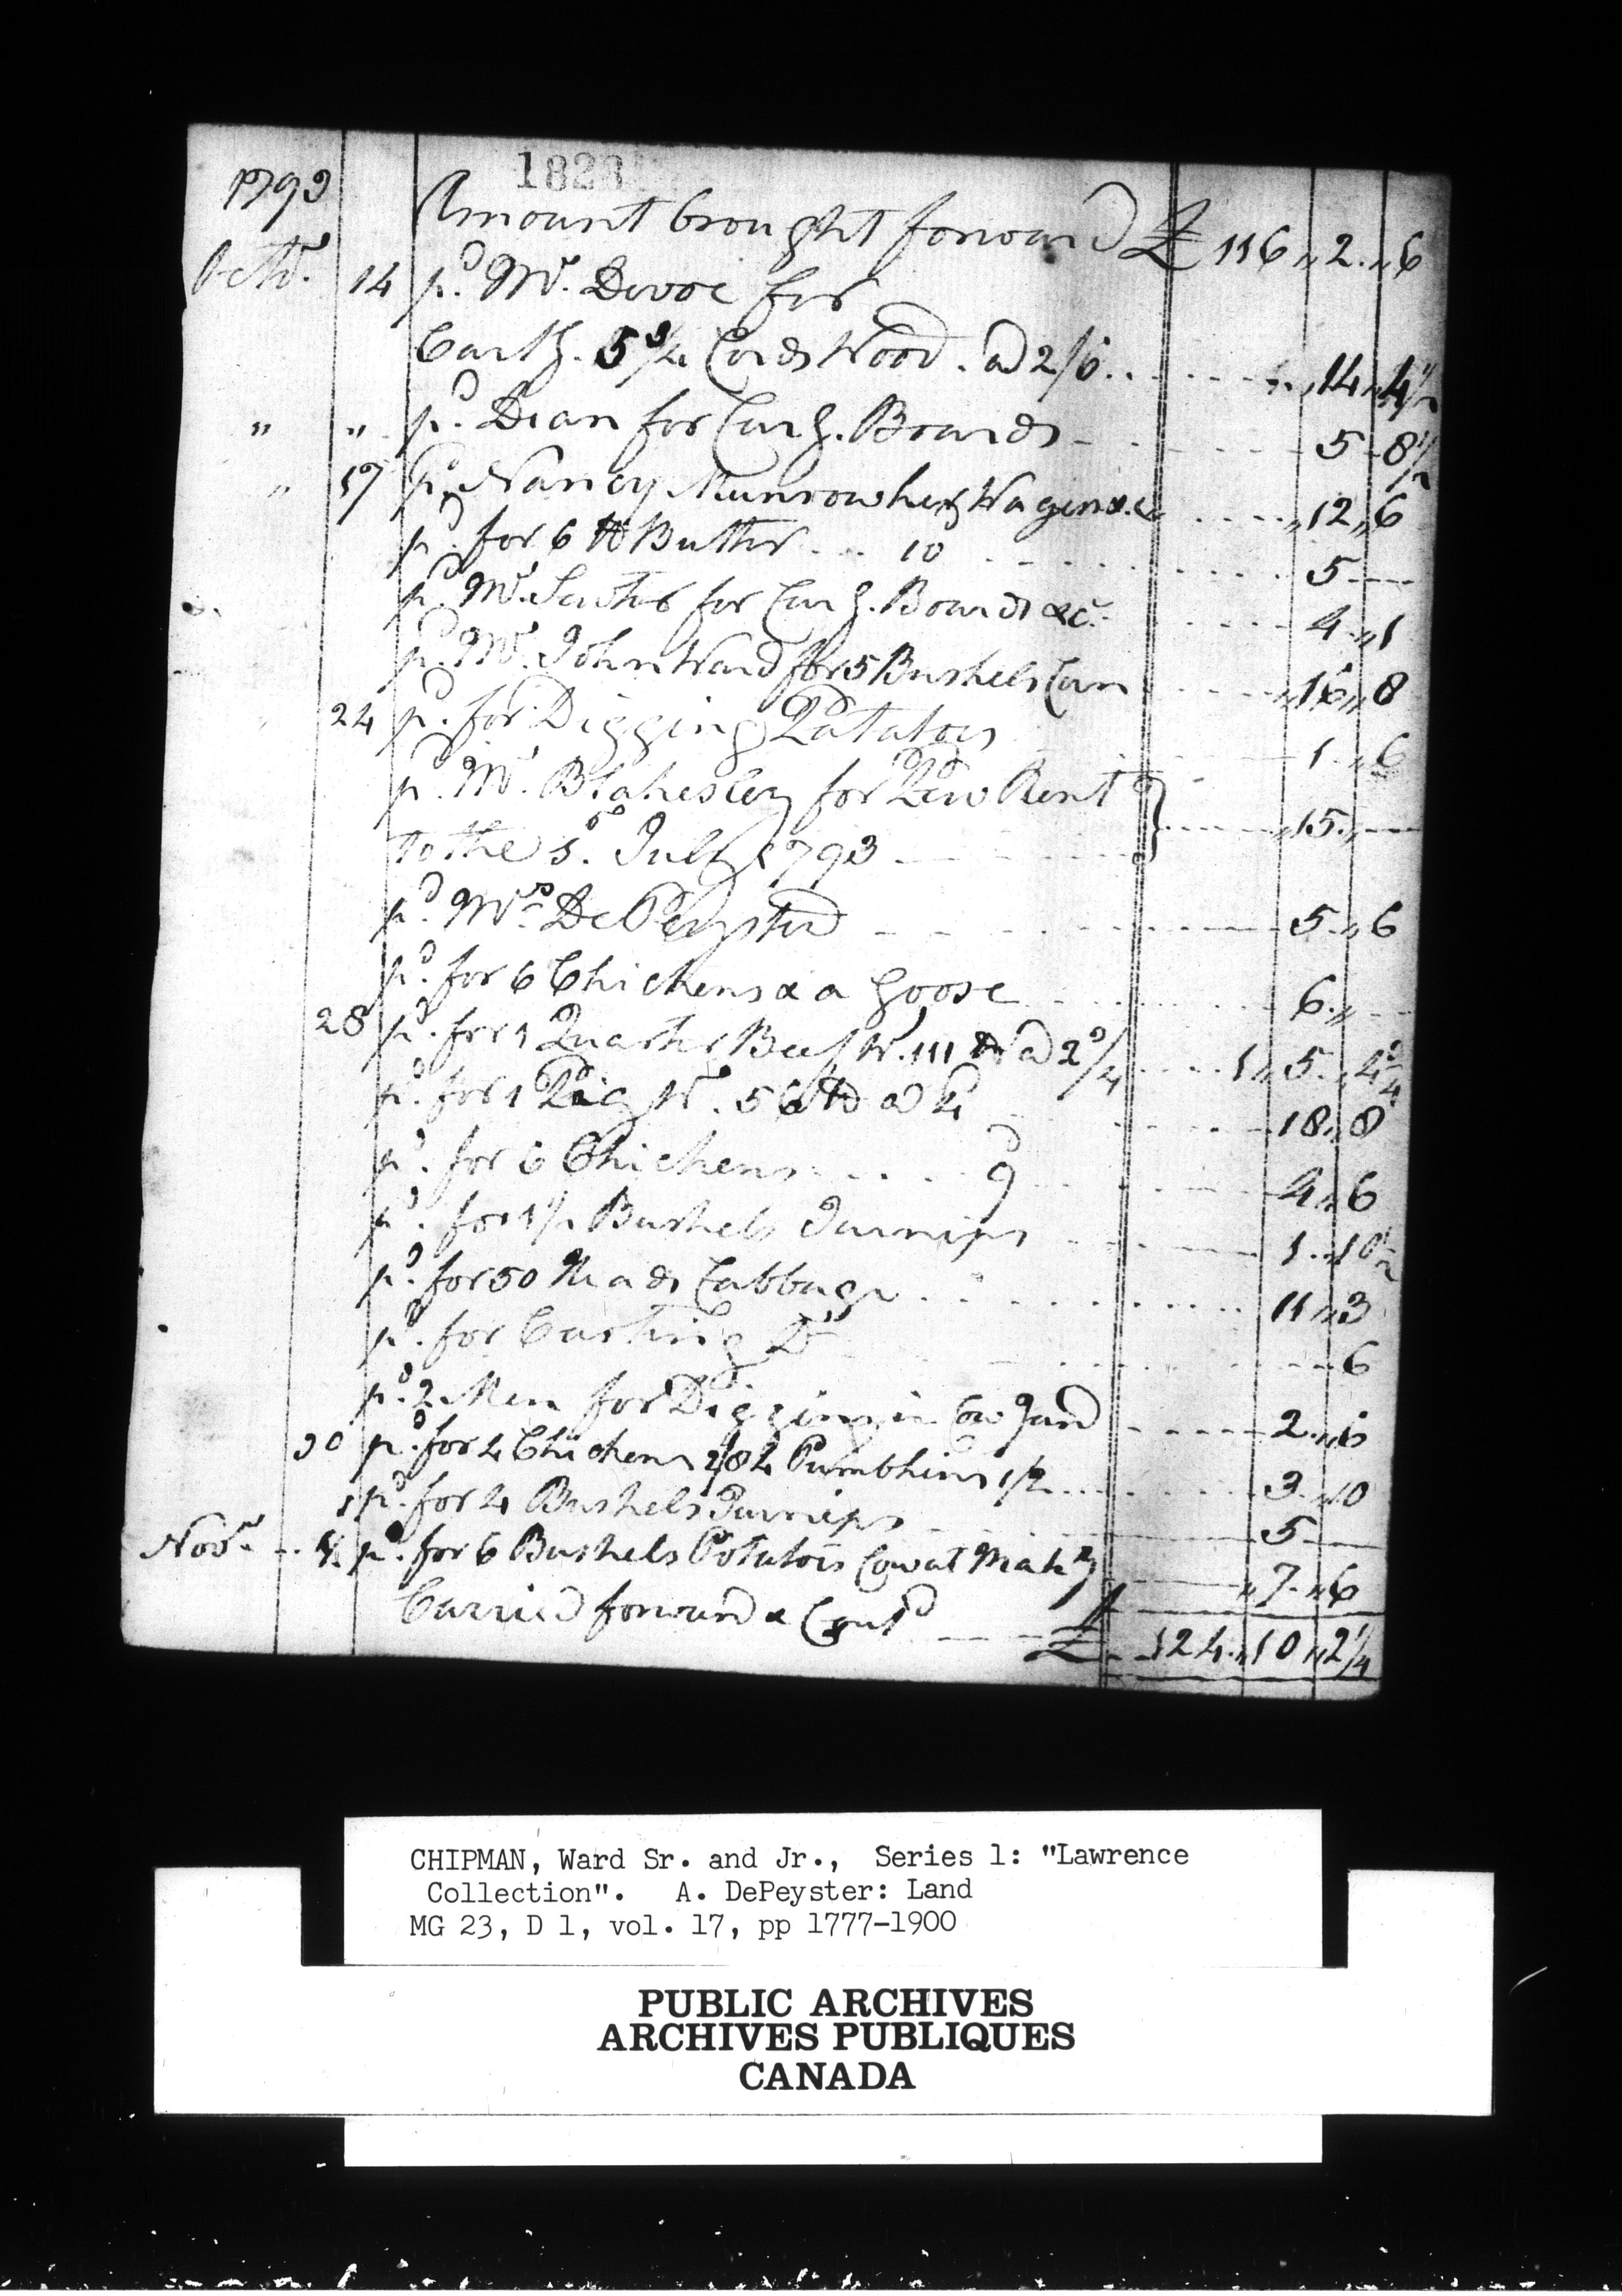 1828
1793 Amount brought forward £ 116 „ 2 „ 6
Octr. 14 pd. Mr. Devoe for
Cartg. 5 3/4 Cords Wood . ad 2/6 . . 14 „ 4 1/2
" " pd. Dean for Carg. Boards 5 - 8 1/2
" 17 pd. Nancy Munrow her Wages &c „ 12 „ 6
pd. for 6 lb Butter . . . 10 5 -
pd. Mr. for Carg. Boards &c. 4 „ 1
pd. Mr. John Ward for 5 Bushels Corn „ 16 „ 8
24 pd. for Digging Patatoes 1 „ 6
pd. Mr. Blakesley for Pew Rent
to the 1st. July 1793 „ 15 „ -
pd. Mrs. DePeyster 5 „ 6
pd. for 6 Chickens & a Goose 6 „ -
28 pd. for 1 Quarter Beef Wt. 111 lb ad 2 3/4 1 „ 5 „ 4 3/4
pd. for 1 Pig Wt. 56 lb ad 4 18 „ 8
pd. for 6 Chickens . . . . 9d 4 „ 6
pd. for 1 1/2 Bushels Turnips 1 „ 10 1/2
pd. for 50 Heads Cabbage 11 „ 3
pd. for Carting Do 6
pd. 2 Men for Digging in Cow Yard 2 „ 6
30 pd. for 4 Chickens 2/8 4 Pumbkins 1/2 3 „ 10
1 pd. for 4 Bushels Turnips 5 -
Novr. pd. for 6 Bushels Potatoes Cow at „ 7 „ 6
Carried forward & Contd £ 124 „ 10 „ 2 1/4
CHIPMAN, Ward Sr. and Jr., Series 1: "Lawrence
Collection". A. DePeyster: Land
MG 23, D 1, vol. 17, pp 1777-1900
PUBLIC ARCHIVES
ARCHIVES PUBLIQUES
CANADA